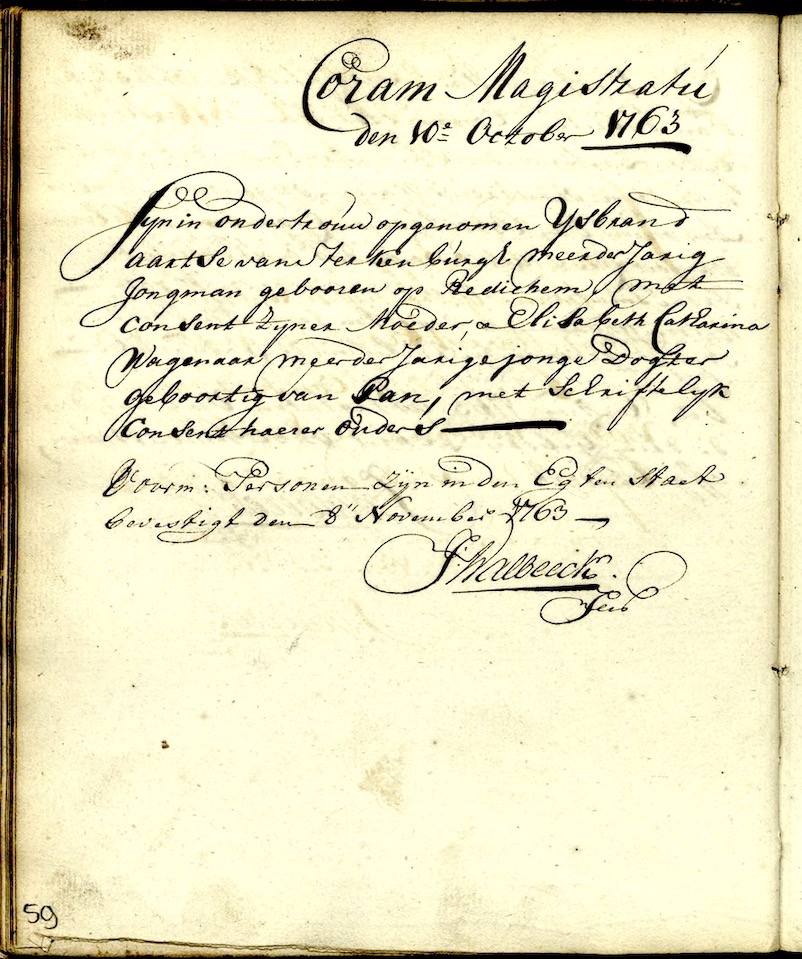 Coram Magistratú
den 10e October 1763
Syn in ondertroúw opgenomen Ysbrand
aartse van Sterkenbúrgh meerder Jarig
Jongman gebooren op Redichem, met
Consent Zyner Moeder, & Elisabeth Catharina
Wagenaar meerder Jarige jonge Dogter
geboortig van Pan, met Schriftelyk
Consent haerer oúders
Voorm: Personen zyn in den Egten staet
bevestigt den 8n November 1763
59